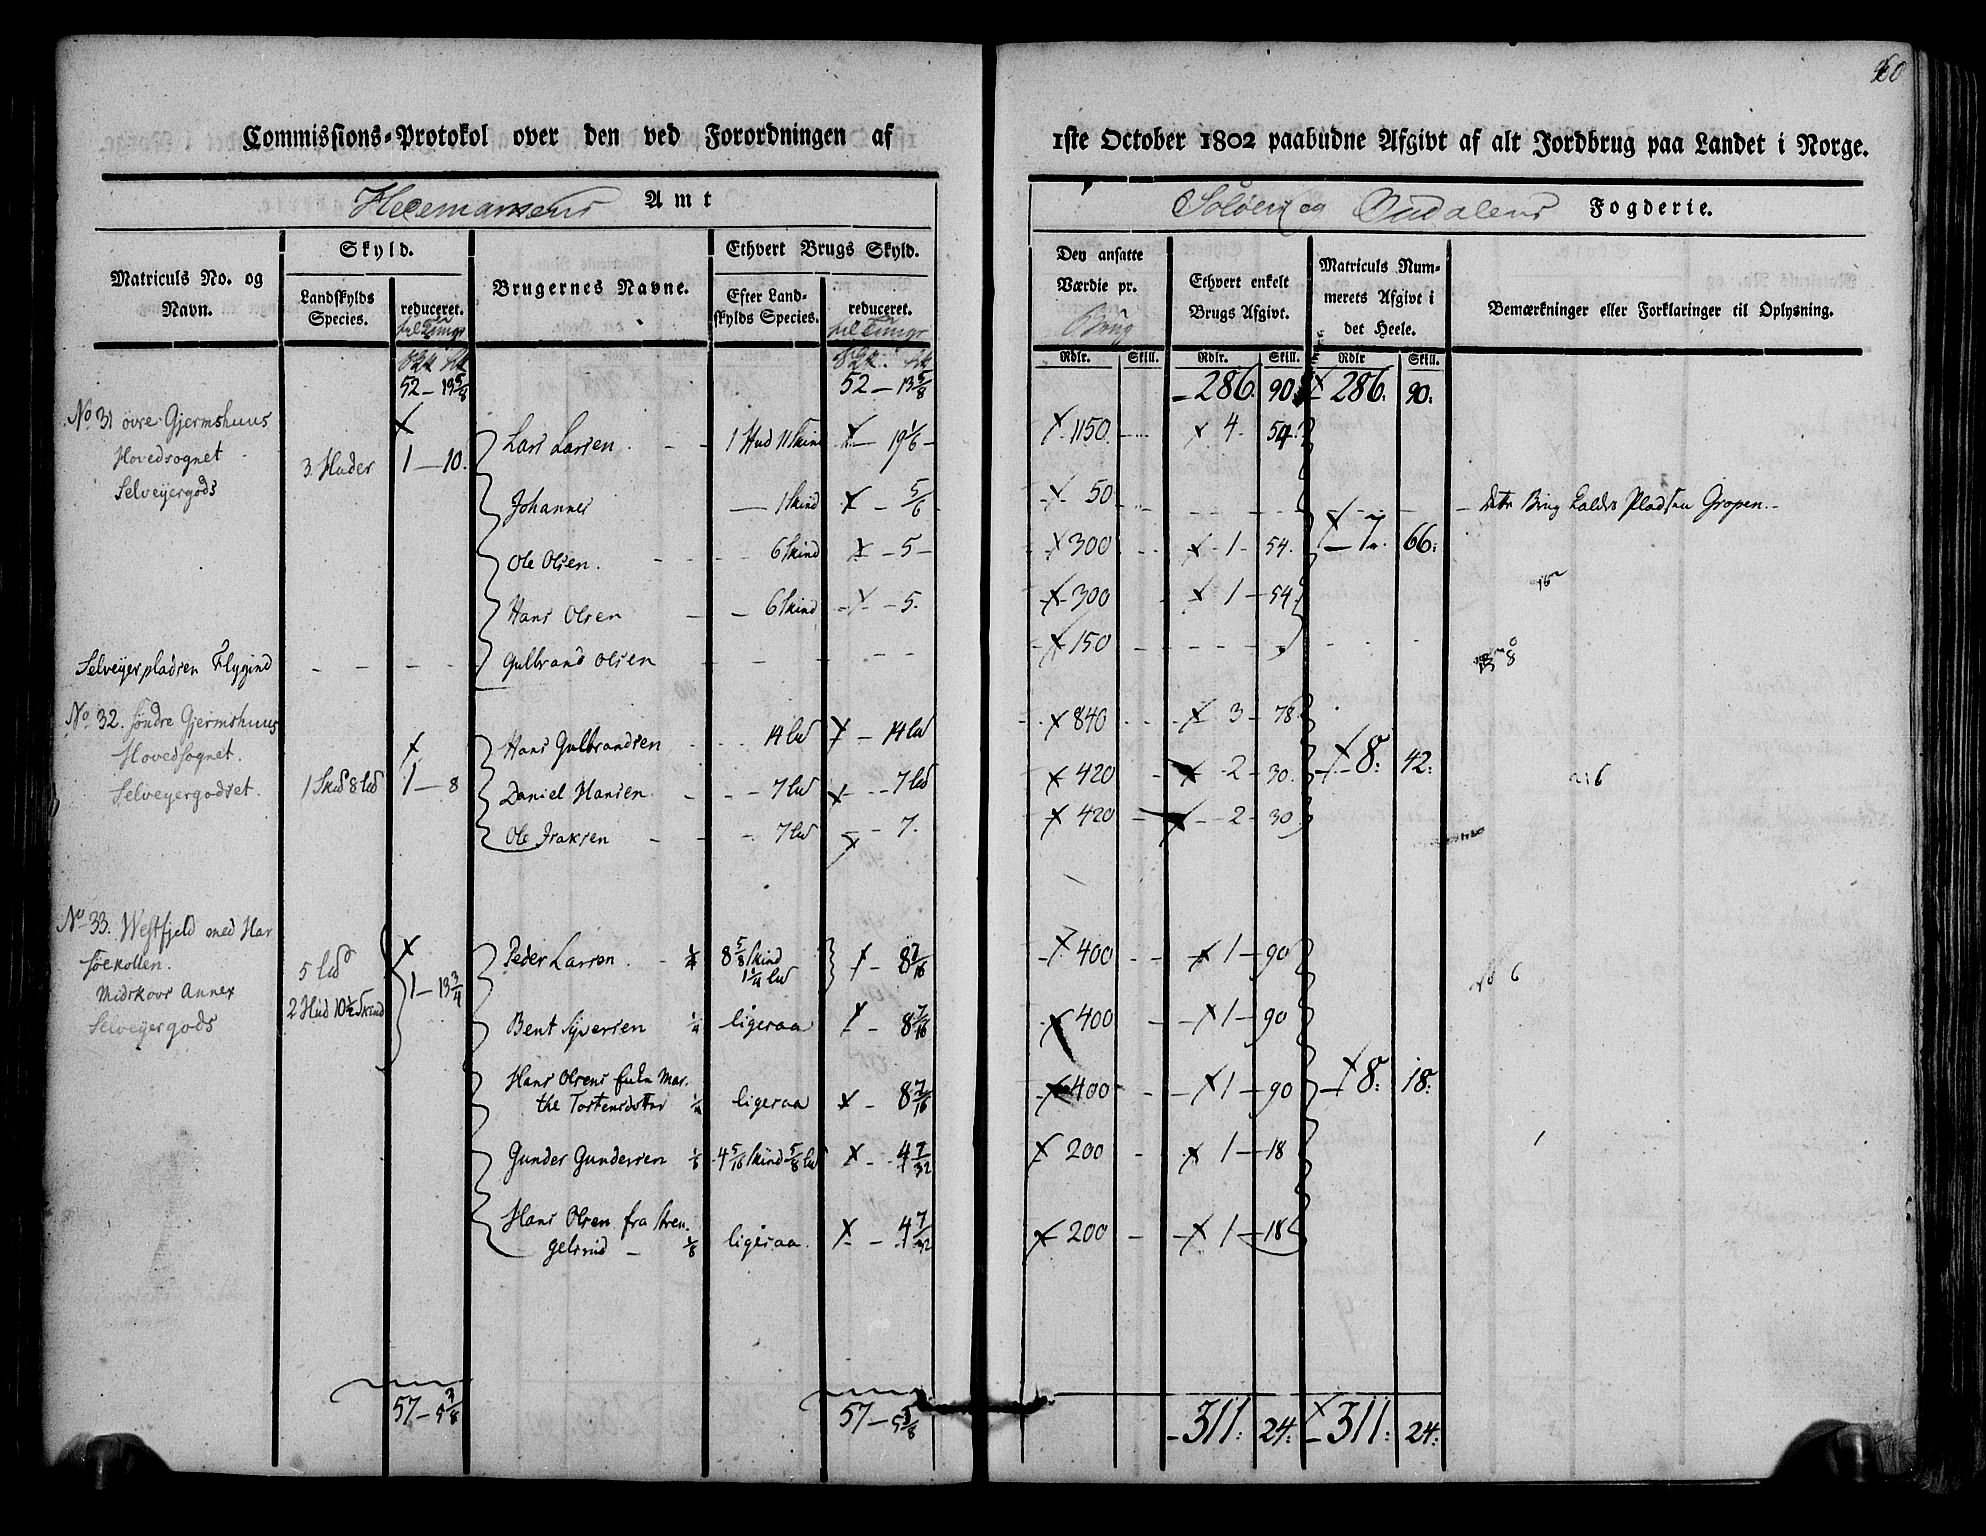 60
Commissions-Protokol over den ved Forordningen af 1ste October 1802 paabudne Afgivt af alt Jordbrug paa Landet i Norge.
Hedemarkens Amt
Soløer og Oudalens Fogderie.
Matriculs No. og Navn.
Skyld.
Landskylds Species.
reduceret.
til Tunge
Brugernes Navne.
Ethvert Brugs Skyld.
Efter Landskylds Species.
reduceret.
til Tunge
Den ansatte Værdie pr.
Brug
Rdlr. Skill.
Ethvert enkelt Brugs Afgivt.
Rdlr. Skill.
Matriculs Nummerets Afgivt i det Heele.
Rdlr Skill.
Bemærkninger eller Forklaringer til Oplysning.
52 — 13 5/8 52 — 13 5/8 286. 90. 286. 90.
No 31 øvre Gjermshuus
Hovedsognet
Selveyergods
3 Huder 1 — 10.
Lars Larsen 1 Hud 11 Skind — 19 1/6 1150. 4. 54.
Johannes 1 Skind 5/6 50 dette Brug kaldes Pladsen Gropen
Ole Olsen. 6 Skind 5 300 1 54. 7. 66.
Hans Olsen 6 Skind 5. 300 1 54
Selveyerpladsen Flygind Gulbrand Olsen 150
No 32. søndre Gjermshuus
Hovedsognet.
Selveyergodset.
1 Skd 8 ld 1 — 8
Hans Gulbrandsen 14 ld 14 ld 840 3 78
Daniel Hansen 7 ld 7 ld 420 2 30. 8. 42.
Ole Isaksen 7 ld 7. 420 2 30
No 33. Westfjeld med Har
søekollen.
Midskovs Annex
Selveyergods
5 ld
2 Hud 10 1/2 Skind 1 — 13 3/4
Peder Larsen. 1/4 8 5/8 Skind 1 1/4 ld 8 7/16 400 1 90
Bent Syversen 1/4 ligesaa 8 7/16 400 1 90
Hans Olsens Enke Mar-
the Tostensdatter 1/4 ligesaa 8 7/16 400 1 90 8. 18.
Gunder Gundersen 1/8 4 5/16 Skind 5/8 ld 4 7/32 200 1 18
Hans Olsen fra Stren-
gelsrud 1/8 ligesaa. 4 7/32 200 1 18
57 — 5 3/8 57 — 5 3/8 311. 24. 311. 24.